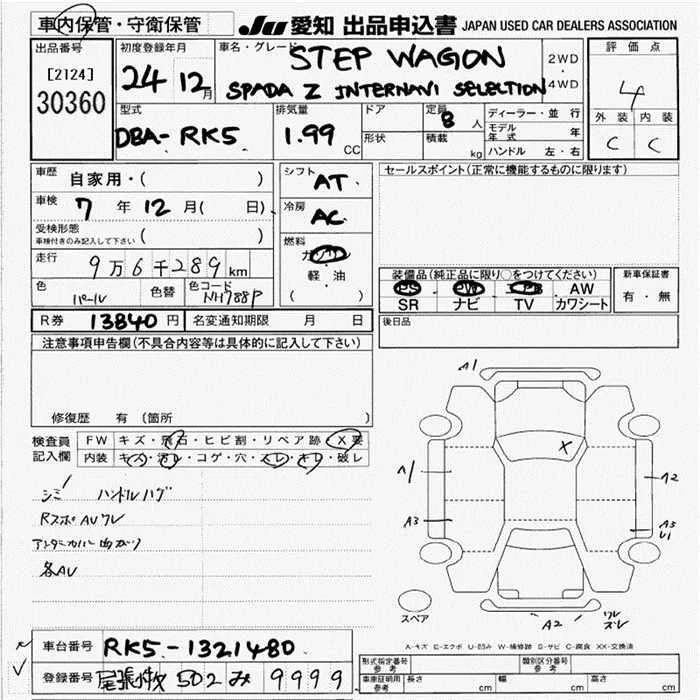 車内保管・守衛保管
JU 愛知 出品申込書 JAPAN USED CAR DEALERS ASSOCIATION
出品番号
[2124]
30360
初度登録年月
24 12月
車名・グレード
STEP WAGON
SPADA Z INTERNAVI SELECTION
2WD
・
4WD
評価点
4
外装 内装
C C
型式
DBA-RK5
排気量
1.99 CC
ドア
形状
定員
8 人
積載
kg
ディーラー・並行
モデル年式 年
ハンドル 左・右
車歴 自家用・( )
車検 7年 12月( 日)
受検形態
車検付きのみ記入して下さい ( )
走行 9万6千289km
色 パール
色替
色コード NH788P
シフト AT
冷房 AC
燃料
ガソリン
軽・油
( )
セールスポイント(正常に機能するものに限ります)
装備品(純正品に限り○をつけてください)
PS PW エアB AW
SR ナビ TV カワシート
新車保証書
有・無
後日品
R券 13840円
名変通知期限 月 日
注意事項申告欄(不具合内容等は具体的に記入して下さい)
修復歴 有(箇所 )
検査員
記入欄
FW キズ・飛石・ヒビ割・リペア跡・X要
内装 キズ・汚レ・コゲ・穴・スレ・キレ・破レ
シミ ハンドルハゲ
RスポAVワレ
アンダーカバー曲がり
各AU
A1
X
A1
A2
A3
A3
U1
A2
ワレ
ズレ
スペア
A-キズ E-エクボ U-凹み W-補修跡 S-サビ C-腐食 XX-交換済
車台番号 RK5-1321480
登録番号 尾張小牧 502 み 9999
形式指定番号
参考
類別区分番号
参考
車庫証明用
参考
長さ cm 幅 cm 高さ cm